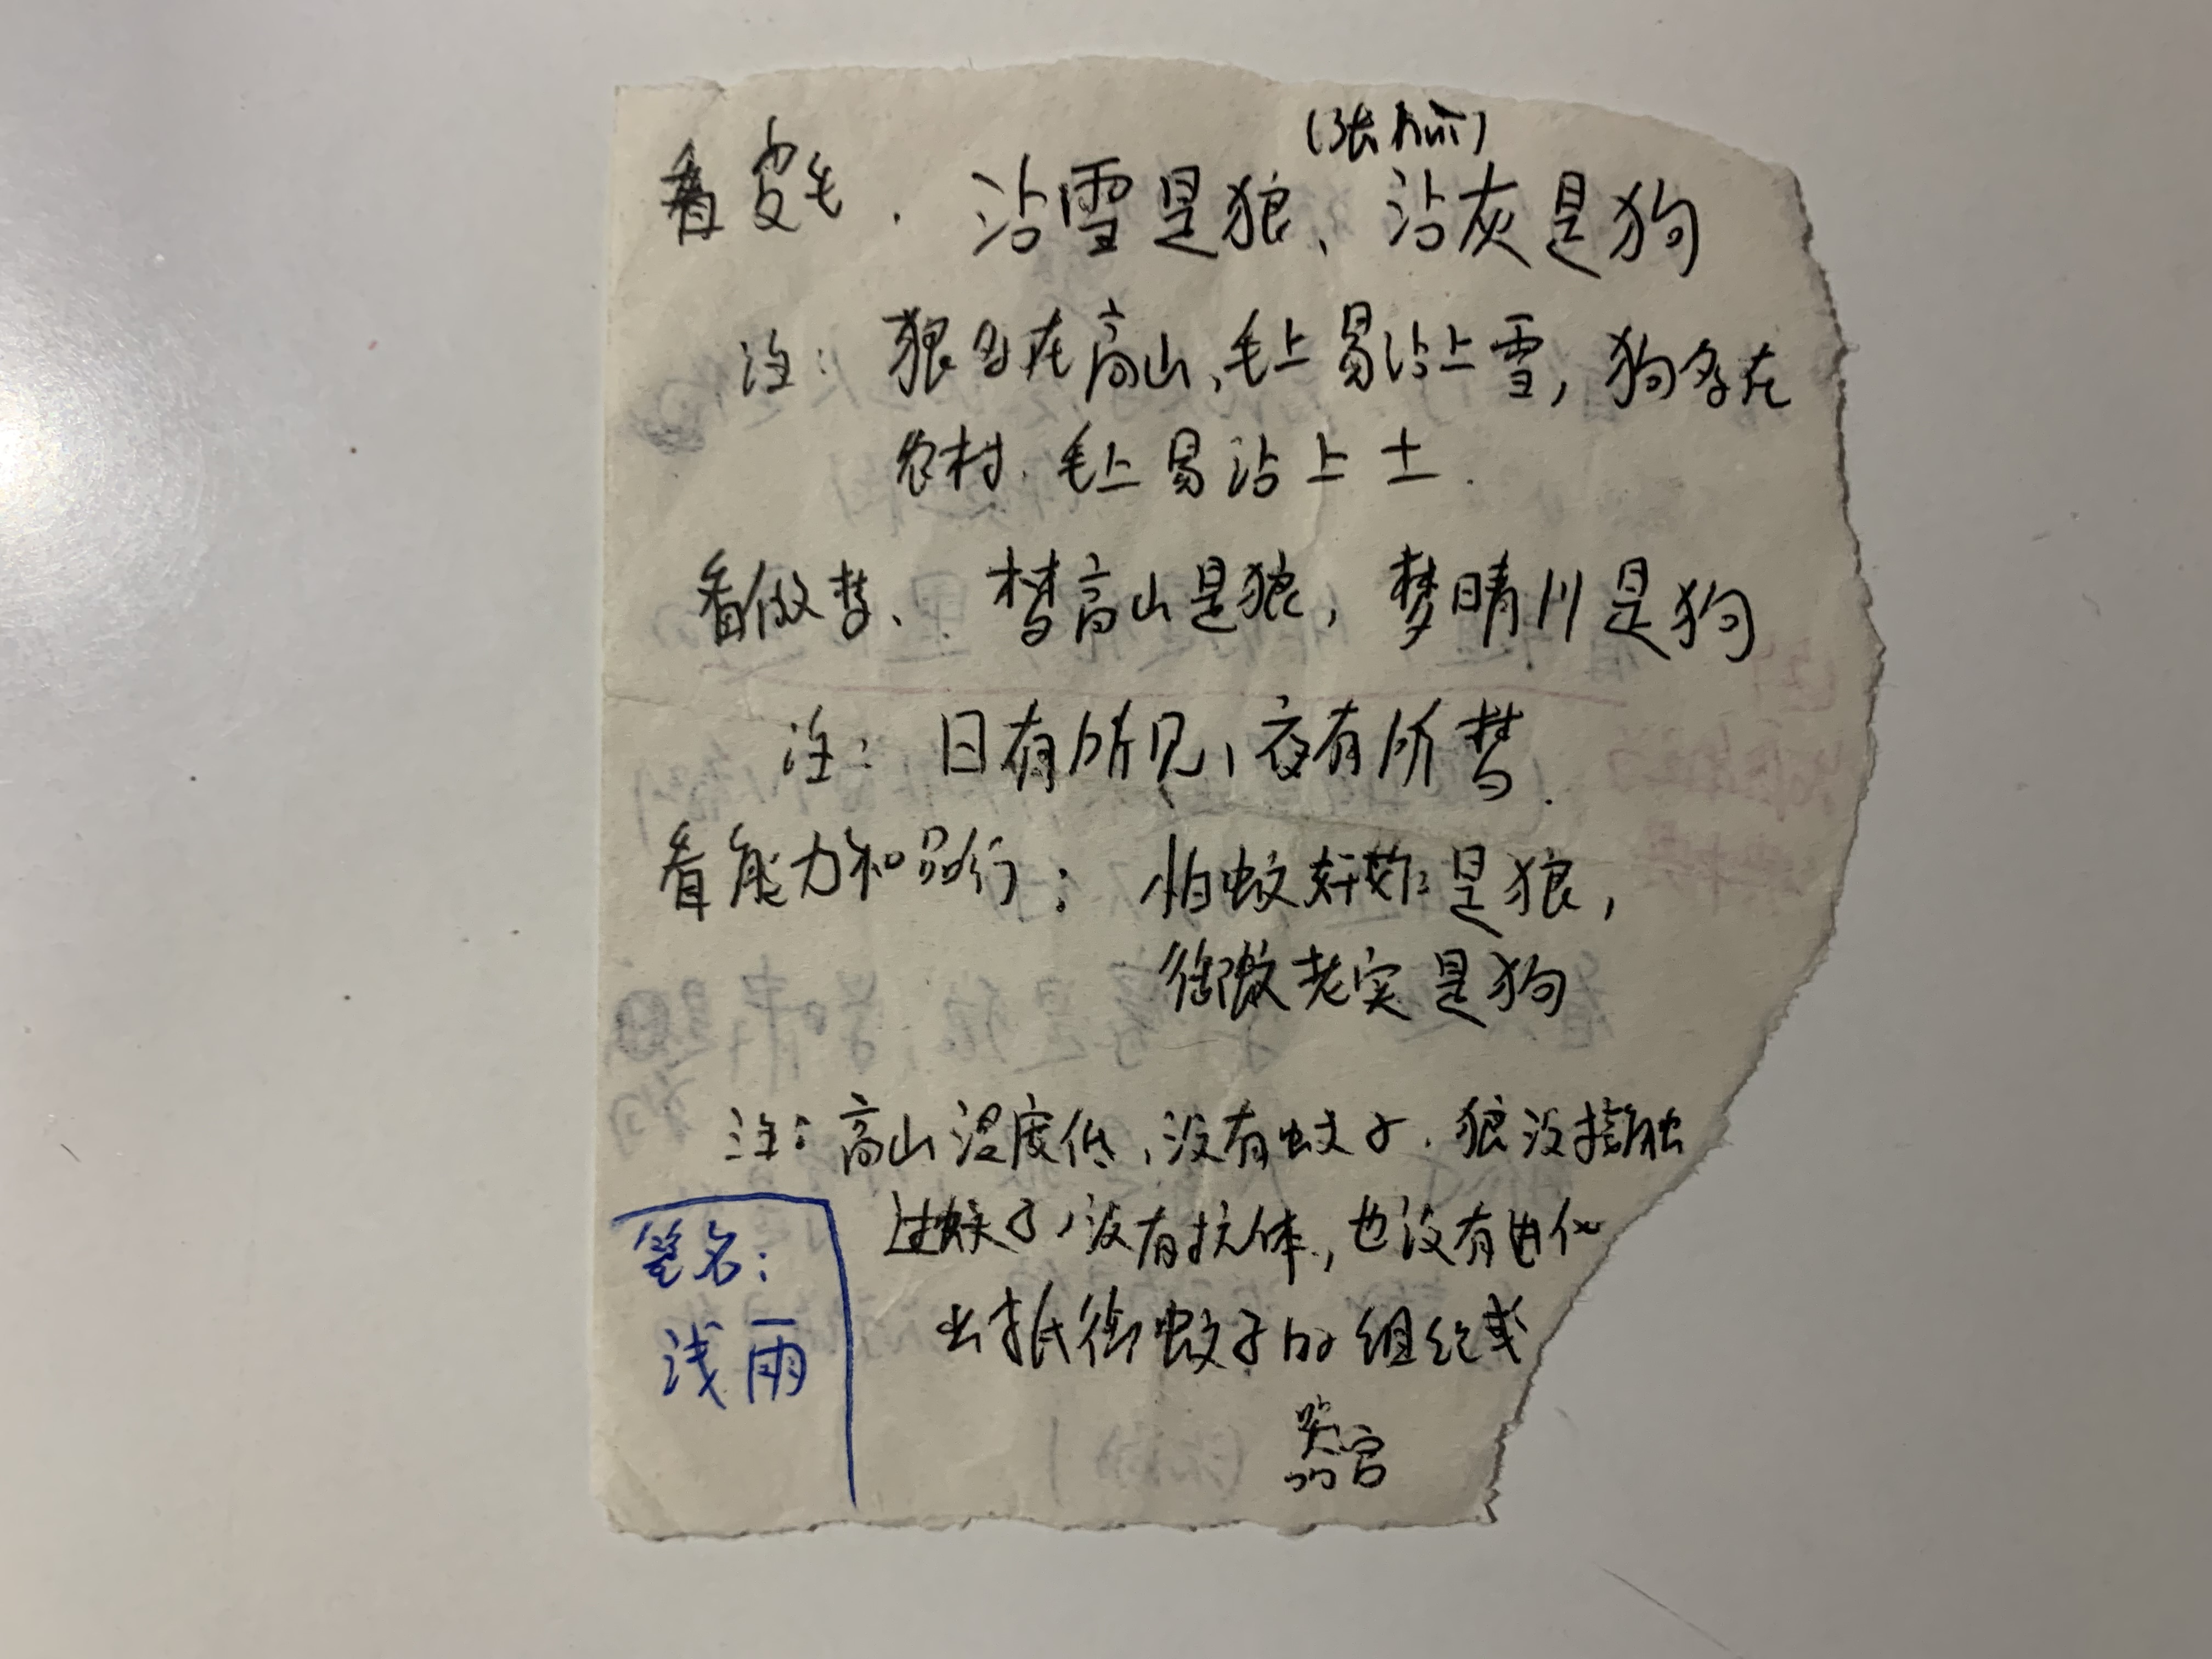 看皮毛. 沾雪是狼、沾灰是狗
注: 狼多在高山、毛上易沾上雪, 狗多在
农村. 毛上易沾上土.
看做梦、 梦高山是狼, 梦晴川是狗
注: 日有所见, 夜有所梦.
看能力和品行: 怕蚊奸诈是狼,
御傲老实是狗
注: 高山温度低, 没有蚊子. 狼没接触
过蚊子, 没有抗体, 也没有进化
出抵御蚊子的组织或
器官
笔名:
浅雨